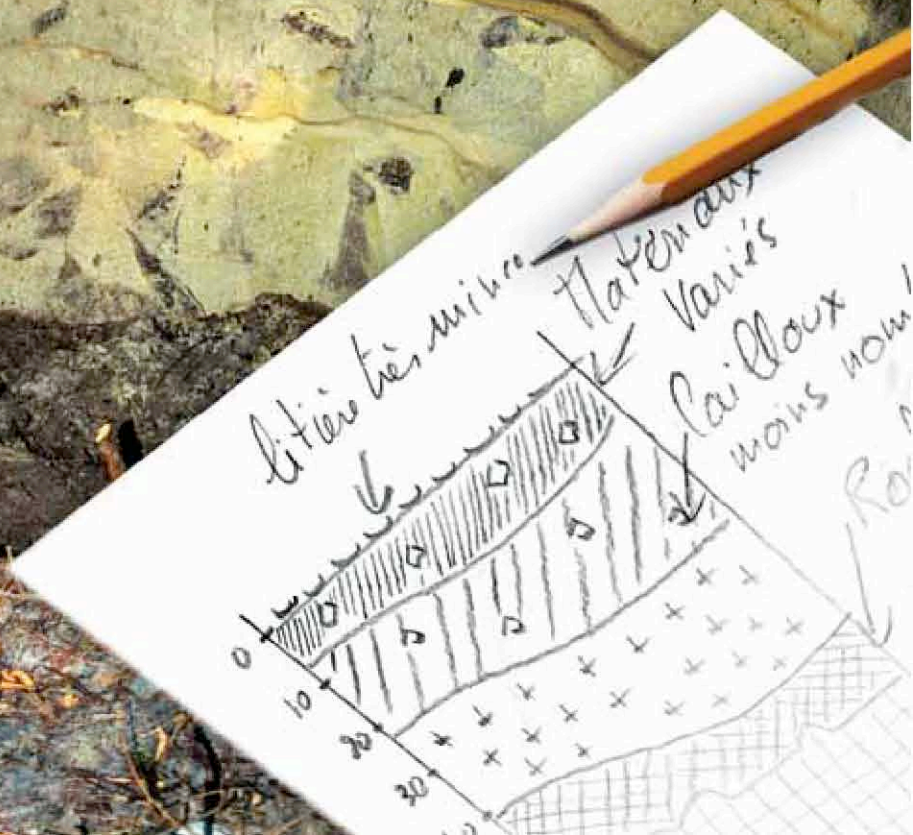 litière très mince
Matériaux
Variés
Cailloux
moins
0
10
20
30